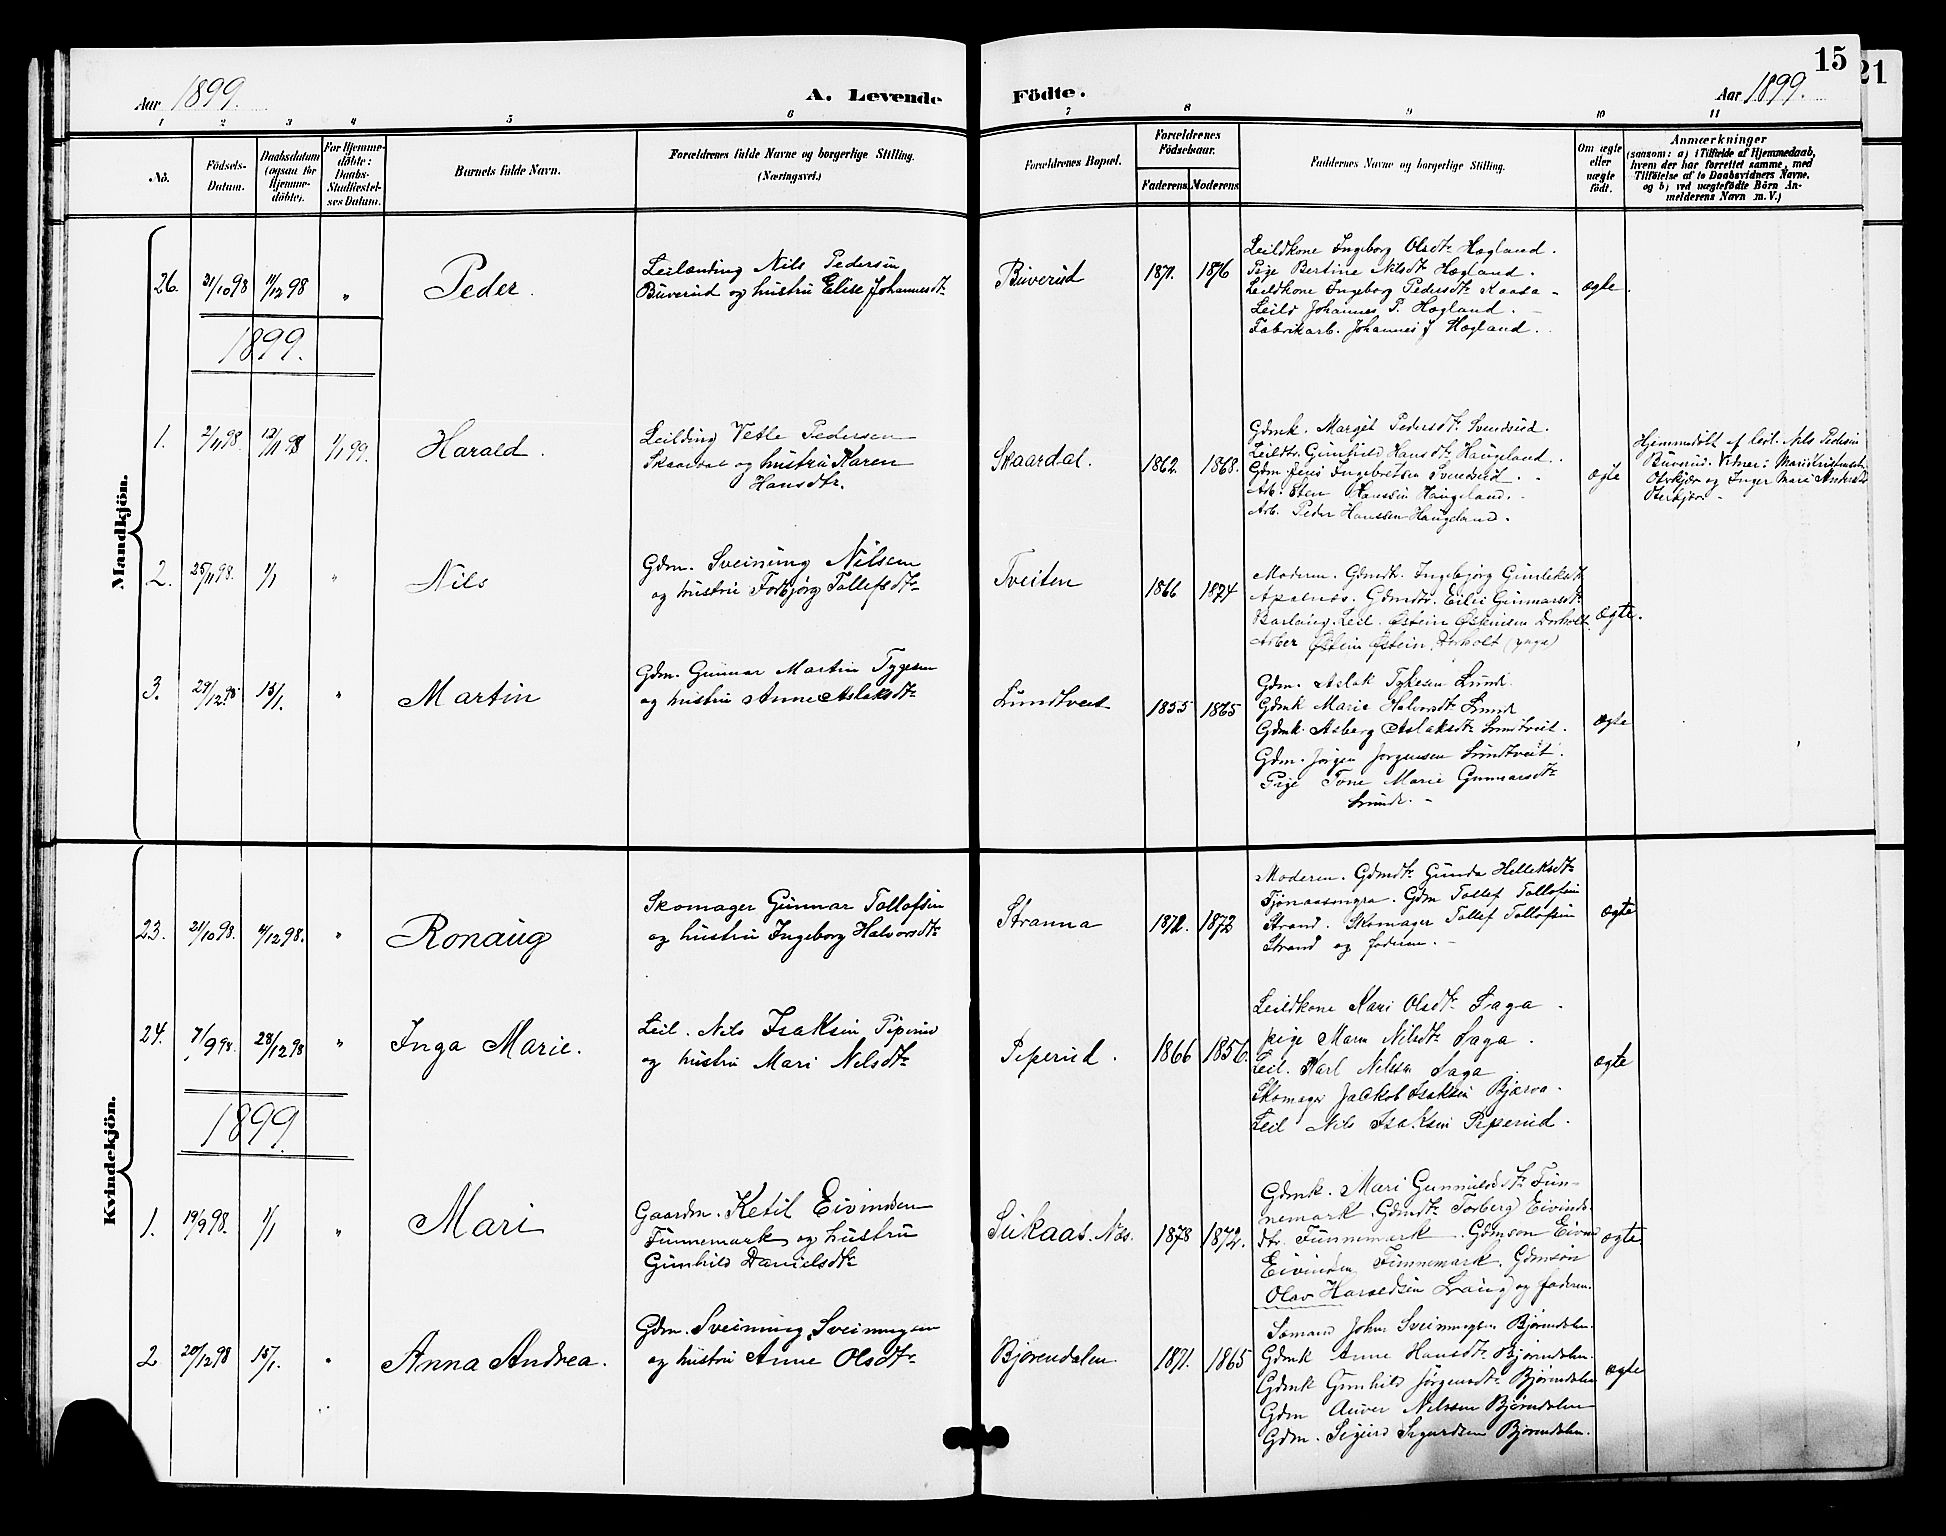 15
21
Aar 1899.
A. Levende
Födte.
Aar 1899.
1 2 3 4 5 6 7 8 9 10 11
No.
Födsels-
Datum.
Daabsdatum
(ogsaa for
Hjemme-
döbte).
For Hjemme-
döbte:
Daabs-
Stadfæstel-
ses Datum.
Barnets fulde Navn.
Forældrenes fulde Navne og borgerlige Stilling.
(Næringsvei.)
Forældrenes Bopæl.
Forældrenes
Födselsaar.
Faderens. Moderens.
Faddernes Navne og borgerlige Stilling.
Om ægte
eller
uægte
födt.
Anmærkninger
(saasom: a) i Tilfælde af Hjemmedaab,
hvem der har forrettet samme, med
Tilföielse af to Daabsvidners Navne,
og b) ved uægtefödte Börn An-
melderens Navn m. V.)
Mandkjön.
26. 31/10 98 11/12 98 " Peder.
Leilænding Nils Pedersen
Buverud og hustru Elise Johannesdtr
Buverud 1871. 1876
Leildkone Ingeborg Olsdtr Hægland.
Pige Bertine Nilsdt Hægland.
Leildkone Ingeborg Pedersdtr Kaasa
Leild Johannes P. Hægland.
Fabrikarb. Johannes J Hægland.
ægte.
1899.
1. 2/11 98. 13/11 98 1/1 99. Harald.
Leilding Vetle Pedersen
Skaardal og hustru Karen
Hansdtr.
Skaardal. 1862. 1868.
Gdmk. Margit Pedersdtr. Svendsrud.
Leildtr. Gunhild Hansdtr Haugeland.
Gdm Jens Ingebretsen Svendsrud.
Arb. Sten Hanssen Haugeland.
Arb. Peder Hanssen Haugeland.
ægte
Hjemmedøbt af leil. Nils Pedersen
Buverud. Vidner: Mari Kristensdtr
Oterkjær og Inger Mari Andersdtr
Oterkjær
2. 25/11 98. 1/1 " Nils
Gdm. Sveinung Nilsen
og hustru Torbjørg Tollefsdtr
Tveiten 1866 1874
Moderen. Gdmdt. Ingebjørg Gunleksdt
Apalnæs. Gdmdtr. Eilie Gunnarsdtr
Barlaug. Leil. Østein Østensen Dorholt.
Arber Østein Østein. Dorholt (ynge)
ægte.
3. 29/12 98 15/1. " Martin
Gdm. Gunnar Martin Tygesen
og hustru Anne Aslaksdtr
Lundtveit 1855 1865
Gdm. Aslak Tykesen Lund.
Gdmk Marie Halvorsdt Lund
Gdmk. Asberg Aslaksdtr Lundtveit.
Gdm. Jørgen Jorgensen Lundtveit.
Pige Tone Marie Gunnarsdtr
Lunde.
ægte
Kvindekjön.
23. 21/10 98. 4/12 98. " Ronaug
Skomager Gunnar Tollofsen
og hustru Ingeborg Halvorsdtr
Stranna 1872. 1872
Moderen. Gdmdtr Gunda Helleksdtr
Tjönaasmyra. Gdm Tollef Tollofsen
Strand. Skomager Tollef Tollofsen
Strand og faderen.
ægte
24. 7/9 98. 28/12 98 " Inga Marie.
Leil. Nils Isaksen Piperud
og hustru Mari Nilsdtr
Piperud. 1866 1856.
Leildkone Kari Olsdtr Saga.
pige Maren Nilsdtr Saga.
Leil. Karl Nilsen Saga
Skomager Jackob Isaksen Bjærva.
Leil Nils Isaksen Piperud.
ægte
1899
1. 19/9 98. 1/1 " Mari
Gaardm. Ketil Eivindsen
Funnemark og hustru
Gunhild Danielsdtr
Sukaas. Næs. 1878 1872.
Gdmk. Mari Gunnulsdtr Fun-
nemark. Gdmdtr Torberg Eivinds-
dtr. Funnemark. Gdmsøn Eivind
Eivindsen Funnemark. Gdmsøn
Olav Haraldsen Haug og faderen.
ægte
2 20/12 98 15/1. " Anna Andrea.
Gdm. Sveinung Sveinungsen
og hustru Anne Olsdtr
Bjørendalen 1871. 1865
Sømand John Sveinungsen Bjørndalen.
Gdmk Anne Hansdtr Bjørndalen.
Gdmk Gunhild Jørgensdtr Bjørndalen
Gdm Auver Nilssen Bjørndalen
Gdm. Sigurd Sigurdsen Bjørndalen.
ægte